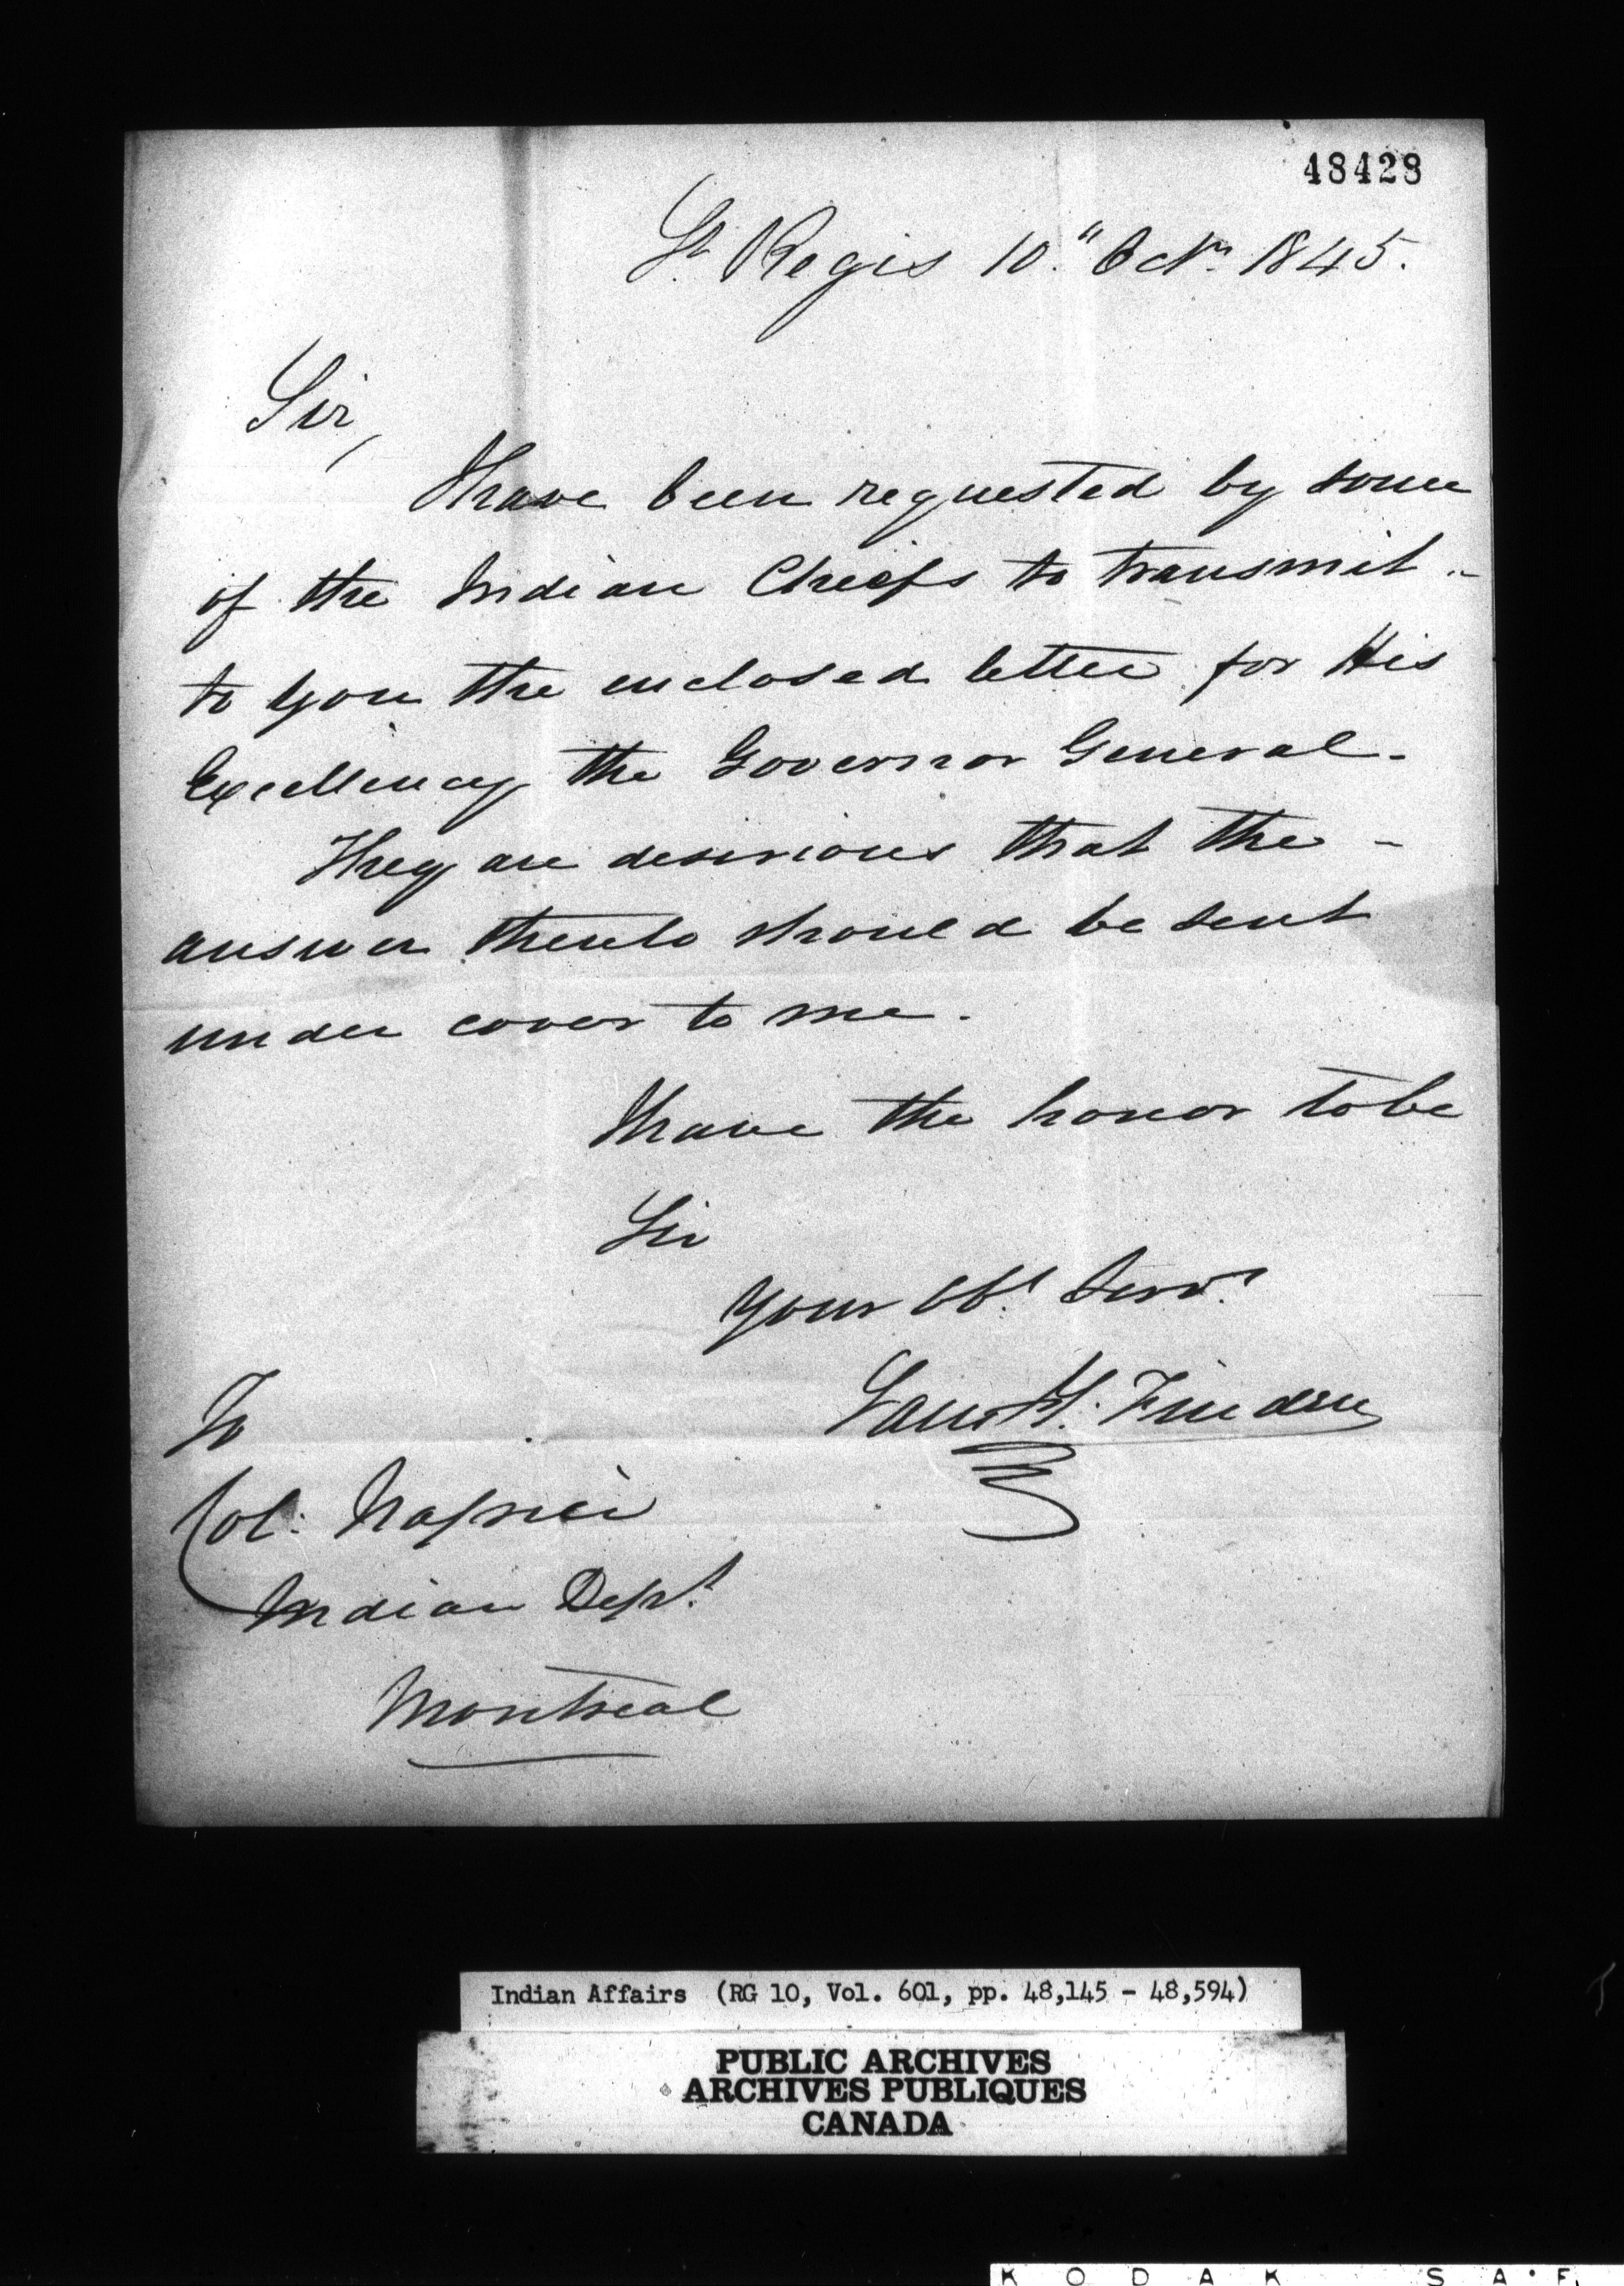 48428
St Regis 10." Octr 1845.
Sir,
I have been requested by some
of the Indian Chiefs to transmit -
to you the enclosed letter for His
Excellency the Governor General -
They are desirious that the -
answer thereto should be sent
under cover to me.
I have the honor to be
Sir
Your Obt Servt
To
Col: Napier
Indian Dept
Montreal
Indian Affairs (RG 10, Vol. 601, pp. 48,145 - 48,594)
PUBLIC ARCHIVES
ARCHIVES PUBLIQUES
CANADA
KODAK SA·F.